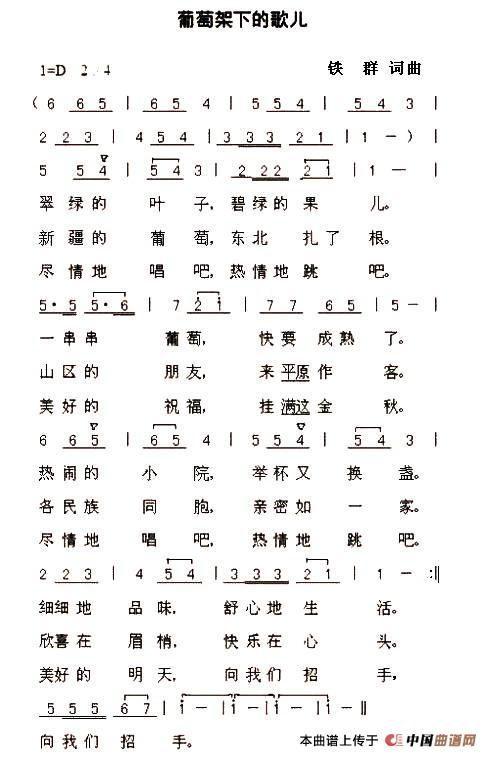 葡萄架下的歌儿
1=D 2/4
铁 群 词曲
( 6 6 5 | 6 5 4 | 5 5 4 | 5 4 3 |
2 2 3 | 4 5 4 | 3 3 3 2 1 | 1 - ) |
5 5 4 | 5 4 3 | 2 2 2 2 1 | 1 — |
翠 绿 的 叶 子, 碧 绿 的 果 儿。
新 疆 的 葡 萄, 东 北 扎 了 根。
尽 情 地 唱 吧, 热 情 地 跳 吧。
5· 5 5· 6 | 7 2 1 | 7 7 6 5 | 5 - |
一 串 串 葡 萄, 快 要 成 熟 了。
山 区 的 朋 友, 来 平原 作 客。
美 好 的 祝 福, 挂 满这 金 秋。
6 6 5 | 6 5 4 | 5 5 4 | 5 4 3 |
热 闹 的 小 院, 举 杯 又 换 盏。
各 民 族 同 胞, 亲 密 如 一 家。
尽 情 地 唱 吧, 热 情 地 跳 吧。
2 2 3 | 4 5 4 | 3 3 3 2 1 | 1 - :||
细 细 地 品 味, 舒 心 地 生 活。
欣 喜 在 眉 梢, 快 乐 在 心 头。
美 好 的 明 天, 向 我 们 招 手,
5 5 5 6 7 | i - | i - | i - ||
向 我 们 招 手。
本曲谱上传于 中国曲谱网